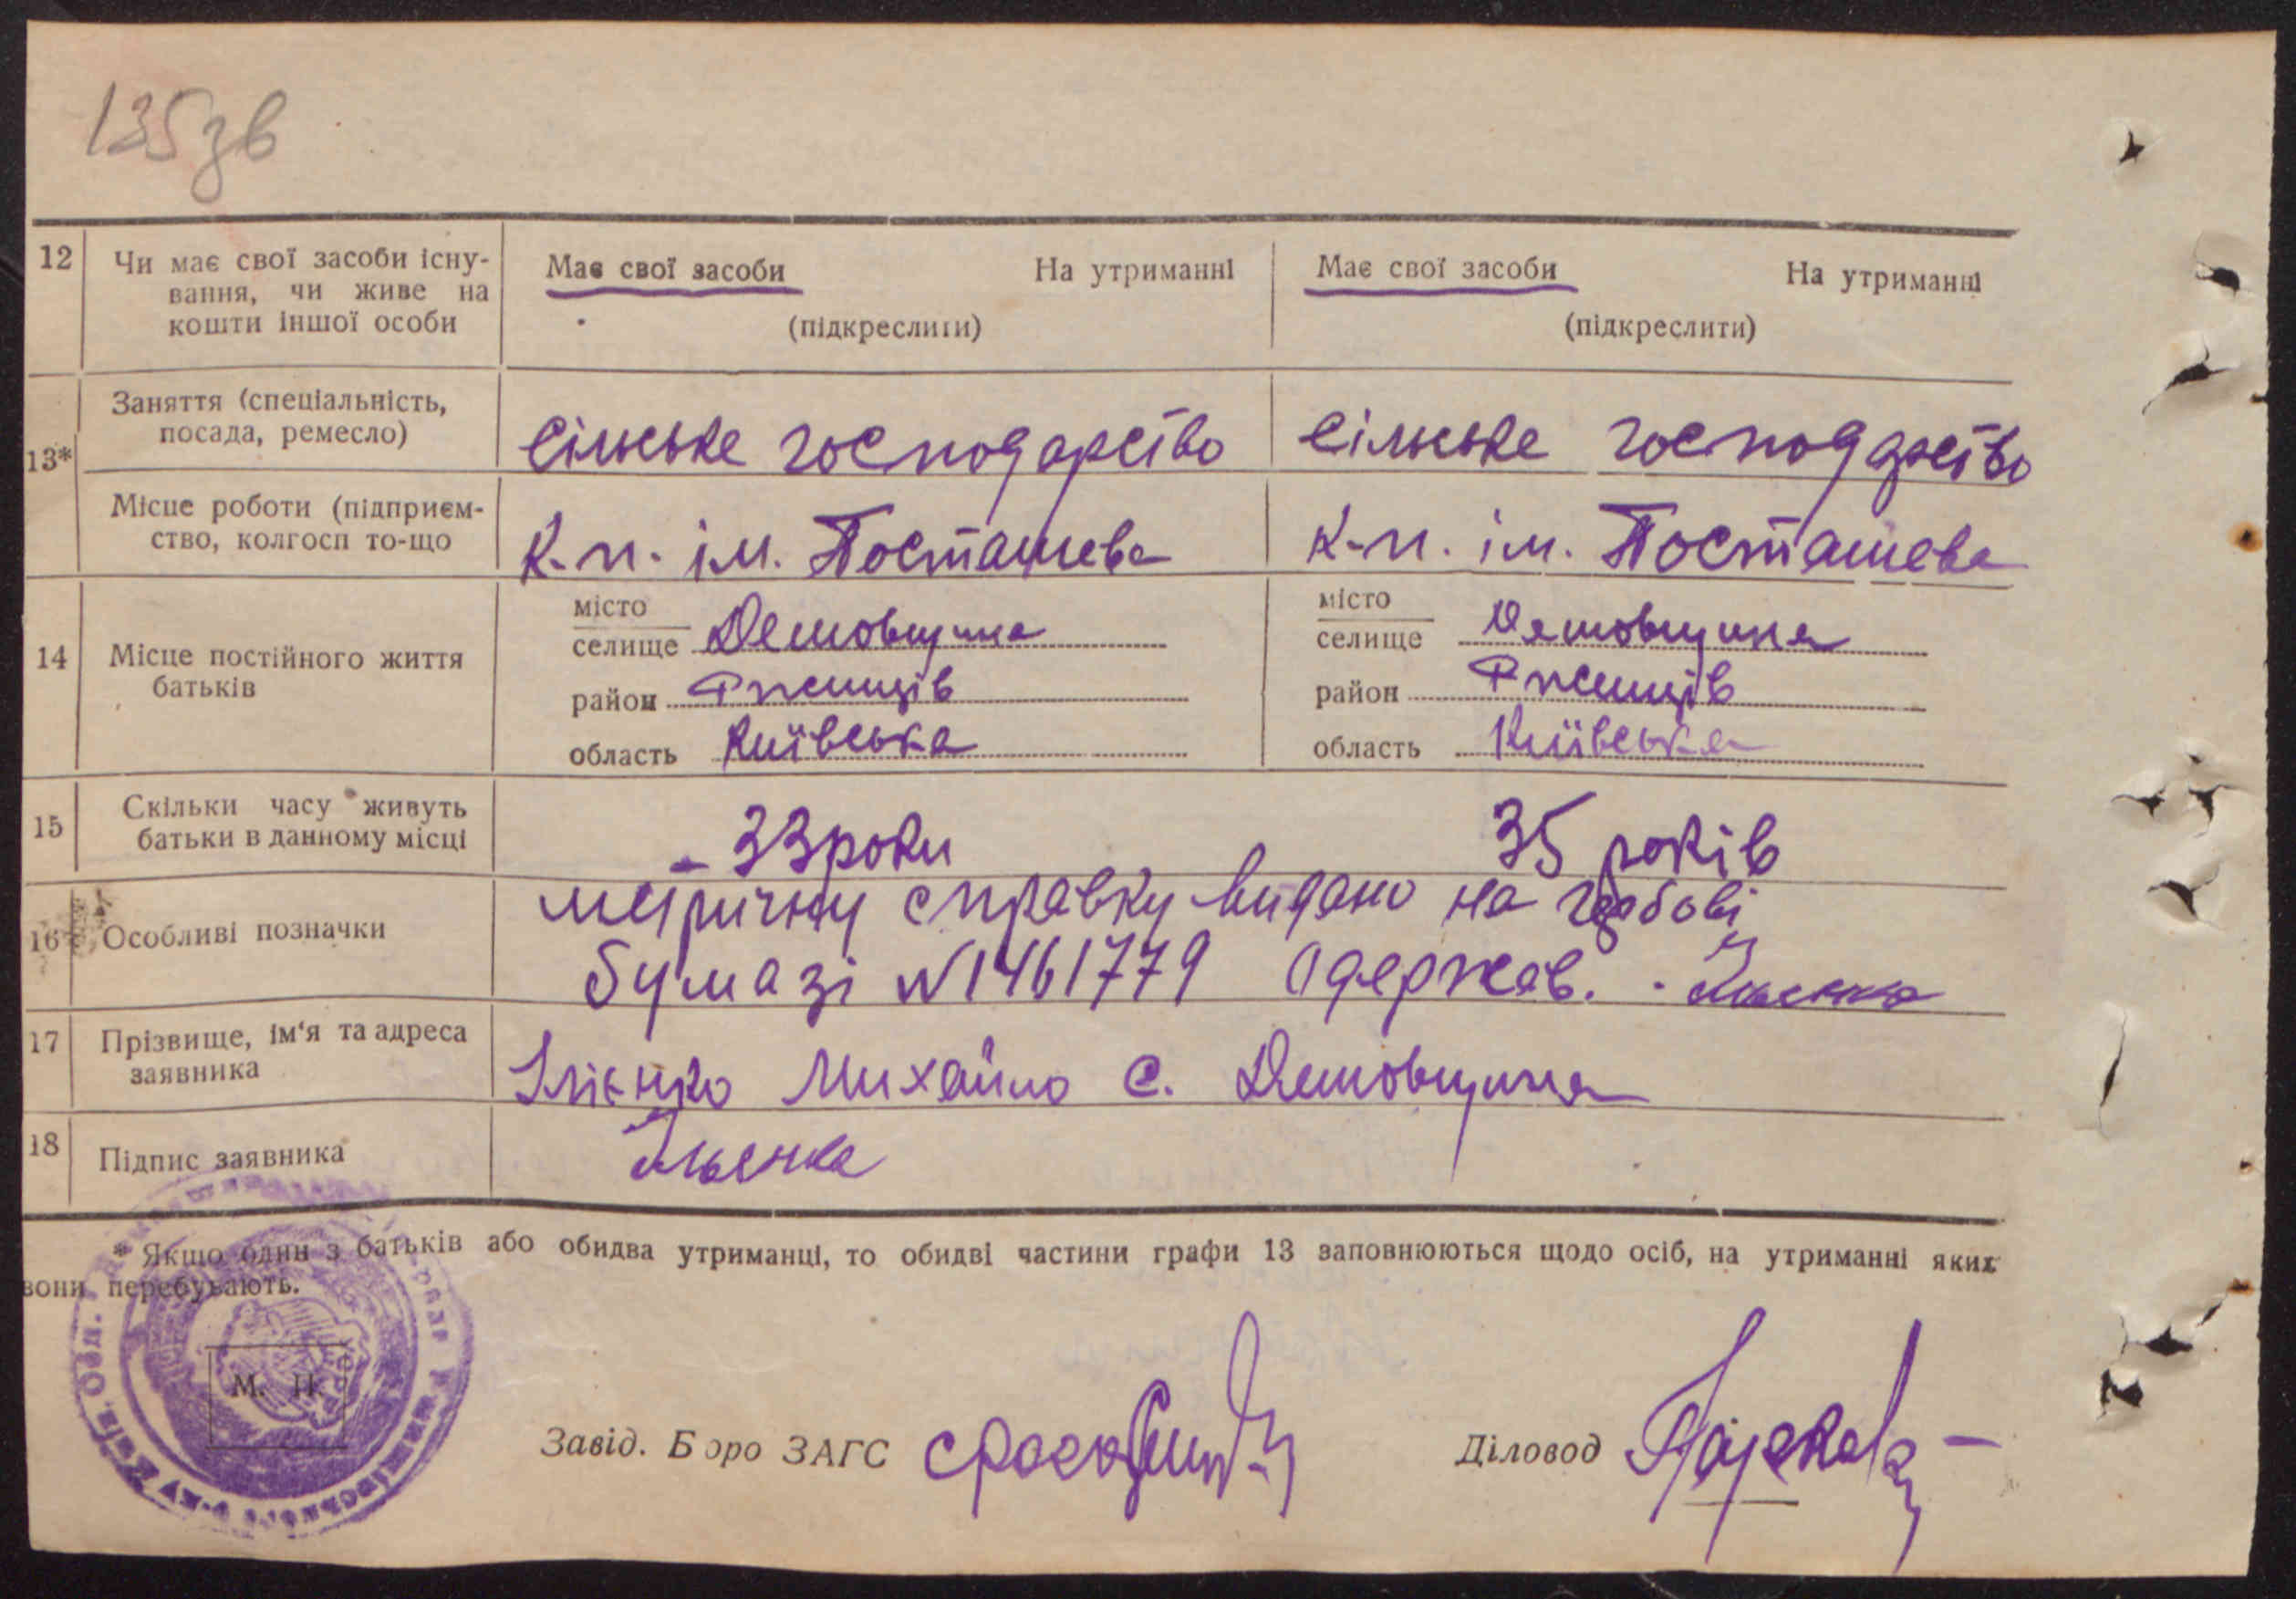 135зв
12 Чи має свої засоби існу-
вання, чи живе на
кошти іншої особи
Має свої засоби На утриманні
(підкреслити)
Має свої засоби На утриманні
(підкреслити)
13*
Заняття (спеціальність,
посада, ремесло)
сільське господарство
сільське господарство
Місце роботи (підприєм-
ство, колгосп то-що
к-п. ім. Посташева
к-п. ім. Посташева
14 Місце постійного життя
батьків
місто
селище Демовщина
район Ржищів
область Київська
місто
селище Демовщина
район Ржищів
область Київська
15 Скільки часу живуть
батьки в данному місці
33 роки
35 років
16 Особливі позначки
метричну справку видано на гербові
бумазі №1461779 Одержав.
17 Прізвище, ім'я та адреса
заявника
Ілієнко Михайло с. Демовщина
18 Підпис заявника
Ильенко
* Якщо один з батьків або обидва утриманці, то обидві частини графи 13 заповнюються щодо осіб, на утриманні яких
вони перебувають.
М. П.
Завід. Бюро ЗАГС
Діловод